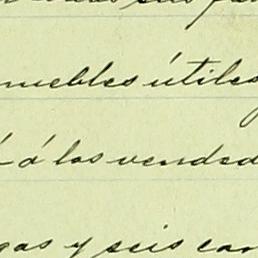 muebles útiles
á los vended
gas y seis can